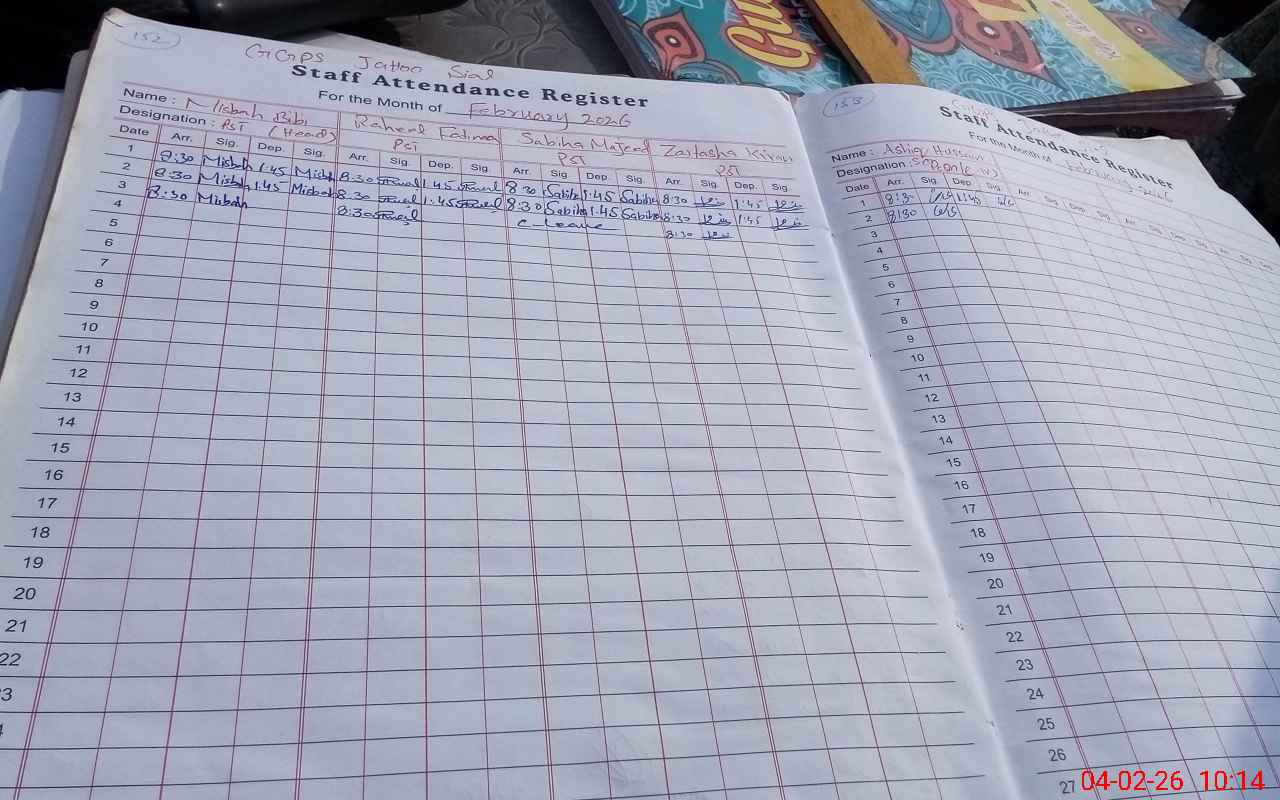 152
GGPS Jattoo Sial
Staff Attendance Register
For the Month of February 2026
Name : Misbah Bibi Raheel Fatima Sabiha Majeed Zartasha Kiran
Designation : PST (Head) PST PST PST
Date Arr. Sig. Dep. Sig. Arr. Sig. Dep. Sig. Arr. Sig. Dep. Sig. Arr. Sig. Dep. Sig.
1 8:30 Misbah 1:45 Misbah 8:30 1:45 8:30 Sabiha 1:45 Sabiha 8:30 1:45
2 8:30 Misbah 1:45 Misbah 8:30 1:45 8:30 Sabiha 1:45 Sabiha 8:30 1:45
3 8:30 Misbah 8:30 C-Leave 8:30
4
5
6
7
8
9
10
11
12
13
14
15
16
17
18
19
20
21
22
3
153
Staff Attendance Register
For the Month of February 2026
Name : Ashiq Hussain
Designation :
Date Arr. Sig. Dep. Sig. Arr. Sig. Dep. Sig. Arr. Sig. Dep. Sig. Arr. Sig. Dep. Sig.
1 8:30 1:45
2 8:30
3
4
5
6
7
8
9
10
11
12
13
14
15
16
17
18
19
20
21
22
23
24
25
26
27
04-02-26 10:14